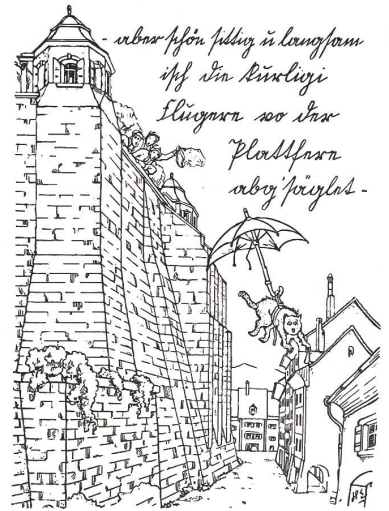 - aber schön sittig u langsam
isch die kurligi
Flugere vo der
Plattfere
abg'säglet -